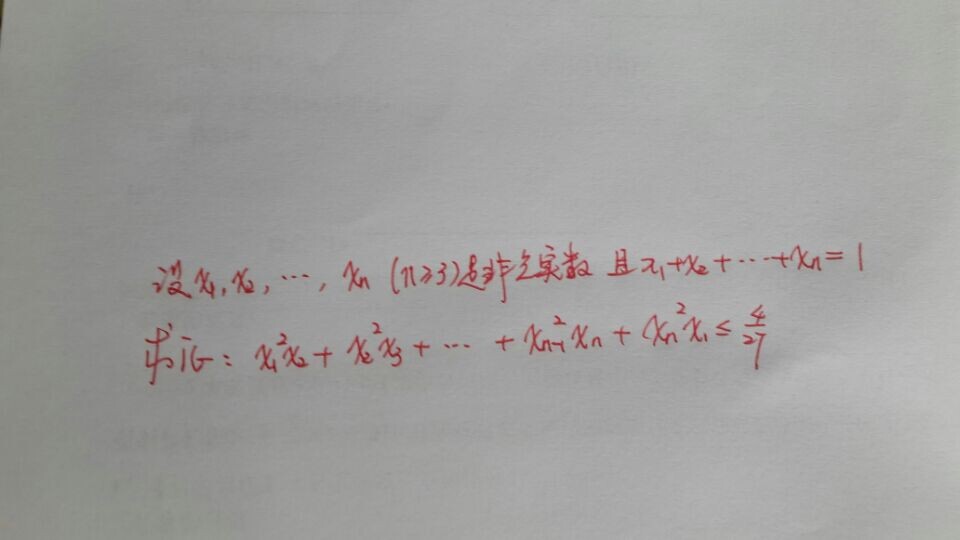 设 x₁, x₂, ⋯, xₙ (n≥3)是非负实数 且 x₁+x₂+⋯+xₙ=1
求证: x₁²x₂ + x₂²x₃ + ⋯ + xₙ₋₁²xₙ + xₙ²x₁ ≤ 4/27